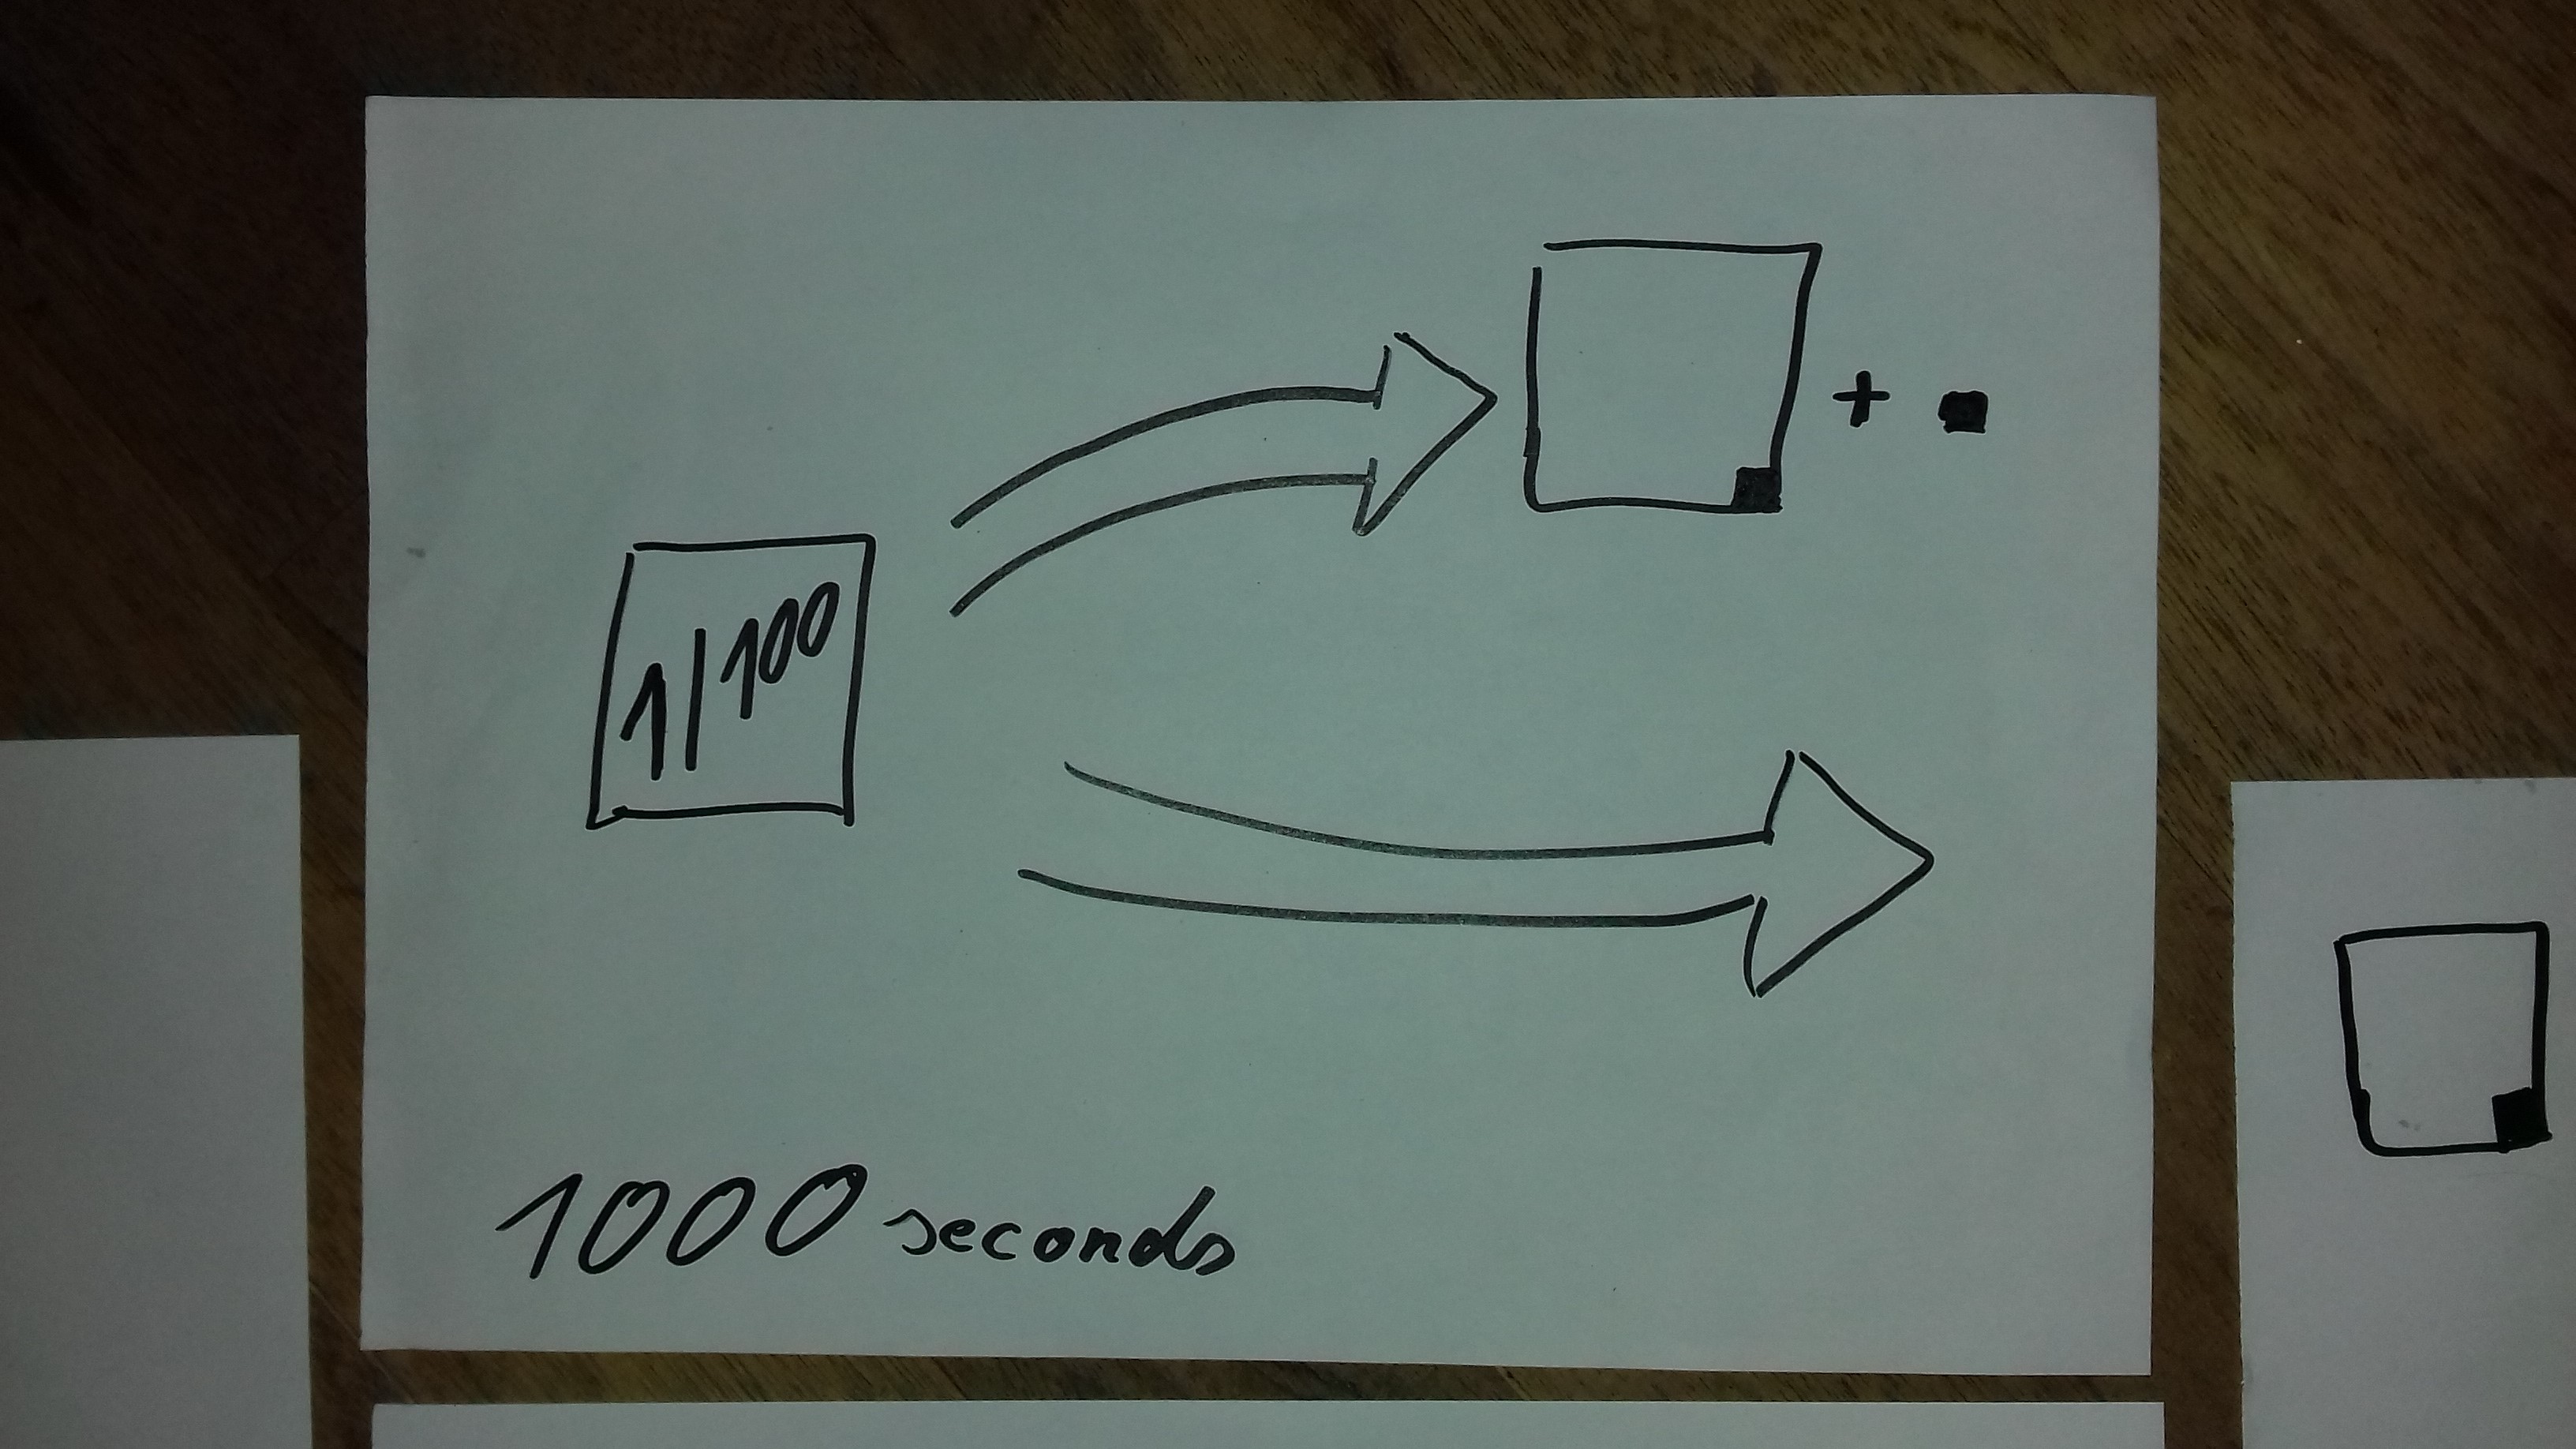 1/100
+
1000 seconds